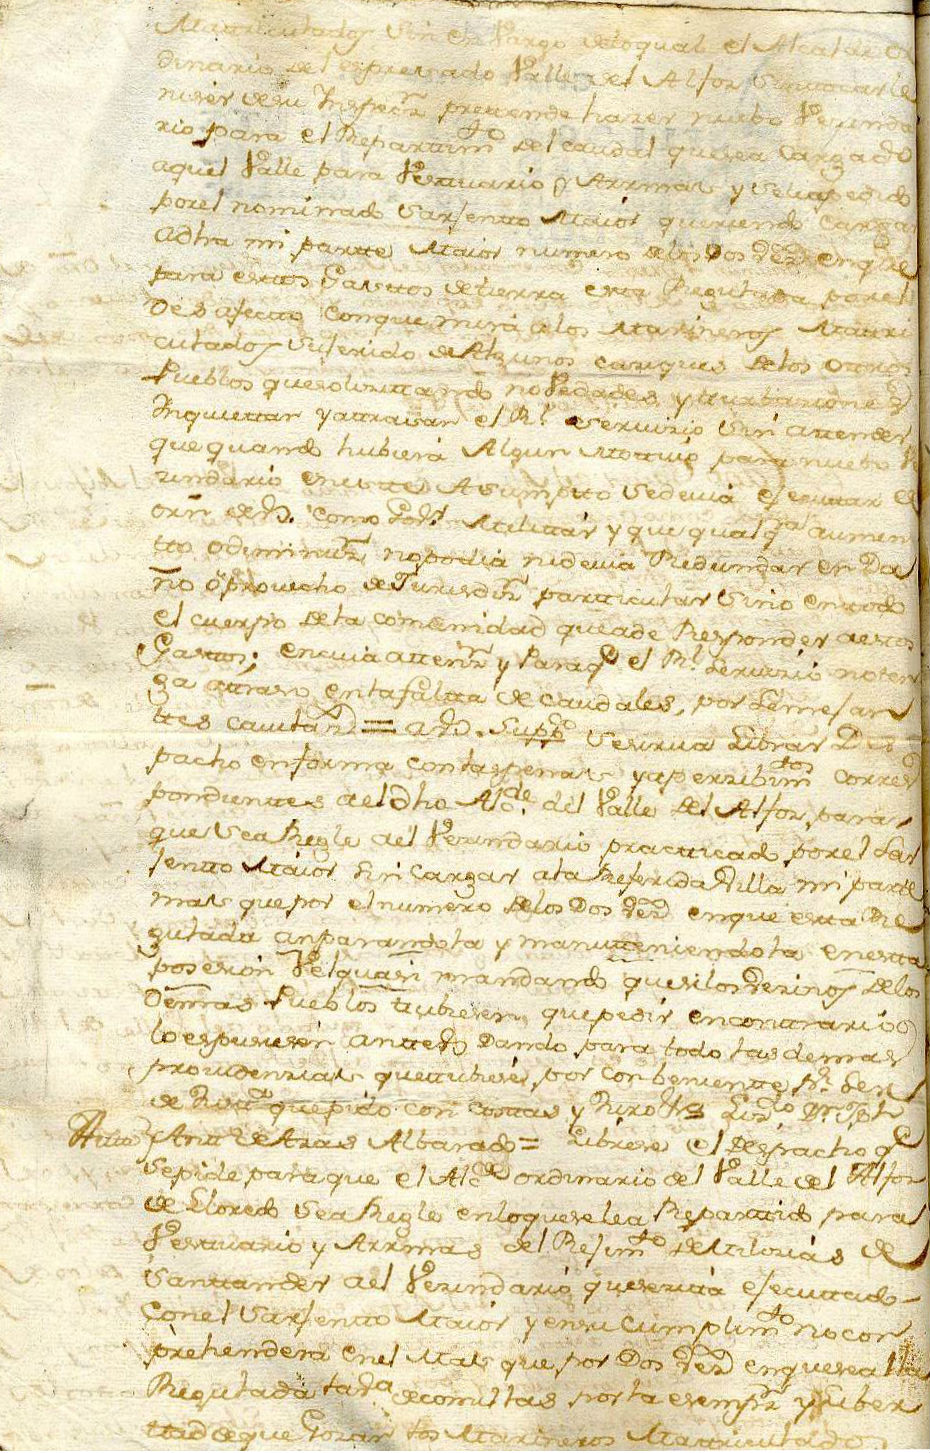 Matriculados sin en Vargo de lo qual el Alcalde or
dinario del expresado Valle del Alfoz sin tocarle
ni ser de su Inspecn. pretende hazer nuebo Vezinda
rio para el Repartimto. del caudal que sea cargado
aquel Valle para Vestuario y Armas y sele a pedido
por el nominado Sarjento Maior queriendo cargar
a dha mi parte Maior numero de los Dos vezs. en que
para estos Gastos de tierra esta Regulada por el
Desafecto con que mira a los Marineros Matri
culados sujerido de Algunos caziques de los otros
Pueblos que solizitando novedades y turbaziones
Inquiettar y attrasar el Rl. servizio sin attender
que quando hubiera Algun Mottivo para nuebo Ve
zindario en este Asumpto se devia ejecutar de
orn de V. como Gral. Militar y que qualqra. aumen
to o diminuzn. no podia ni devia Redundar en Da
ño o provecho de Jurisdizn. partticular sino en todo
el cuerpo de la comunidad que a de Responder a estos
Gastos; en cuia attenzn. y Para q el Rl. servizio no ten
ga attraso en la falta de caudales, por semejan
tes cavilazs. = a V. Suppco. se sirva Librar Des
pacho en forma con las penas y aperzibimtos. corres
pondientes a el dho Alcde. del Valle del Alfoz, para
que se a Regle a el Vezindario practicado por el Sar
jento Maior sin cargar a la Referida Villa mi parte
mas que por el numero de los Dos vezs. en que esta Re
gulada anparandola y manutteniendola en esta
posesion Vel quasi mandando que si los vezinos de los
Demas Pueblos tubiesen que pedir en contrario
lo espusiesen ante V. Dando para todo las demas
providenzias que tubiese por conbeniente pr. ser
de Justa. que pido con costas y Juro &a Lizdo. Dn.
Autto Antt. de Aras Albarado = Librese el Despacho q
se pide para que el Alcde. ordinario del Valle del Alfoz
de Lloredo se a Regle en lo que se le a Repartido para
Vestuario y Armas del Rejimto. de Milizias de
Santtander a el Vezindario que esta ejecuttado
con el Sarjento Maior y en su cumplimto. no con
prehendera en el Mas que por Dos vezs. en que se alla
Regulada la Va. de comillas por la esempzn. y liber
ttad de que Gozan los Marineros Matriculados